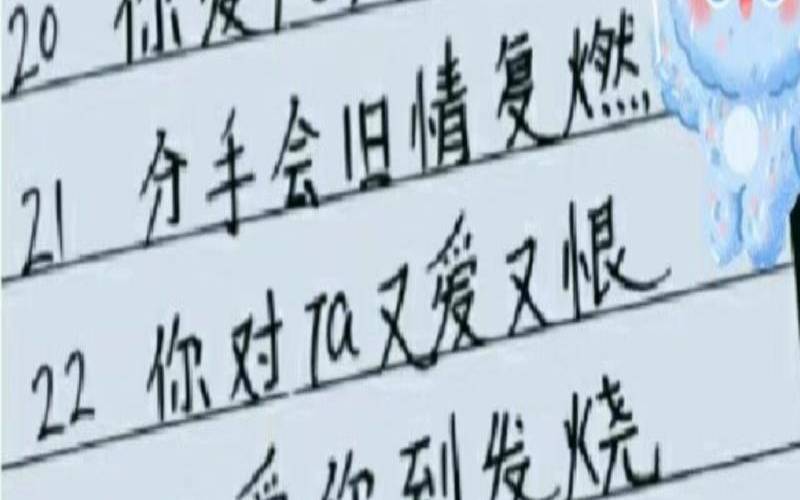 20 你发
21 分手会旧情复燃
22 你对Ta又爱又恨
爱你到发烧